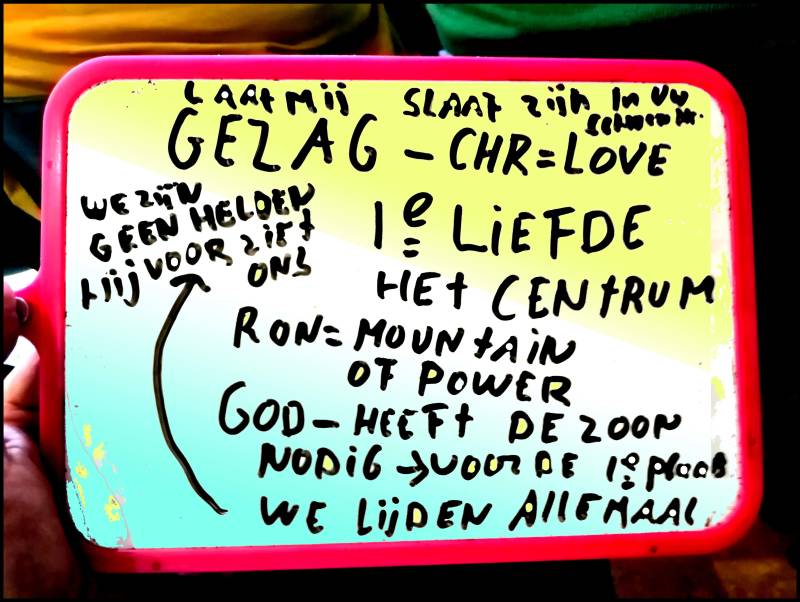 LAAT MIJ SLAAF ZIJN IN UW
GEZAG – CHR = LOVE
WE ZIJN
GEEN HELDEN
HIJ VOORZIET
ONS
1e LIEFDE
HET CENTRUM
RON = MOUNTAIN
OF POWER
GOD – HEEFT DE ZOON
NODIG → VOOR DE 1e plaats
WE LIJDEN ALLEMAAL